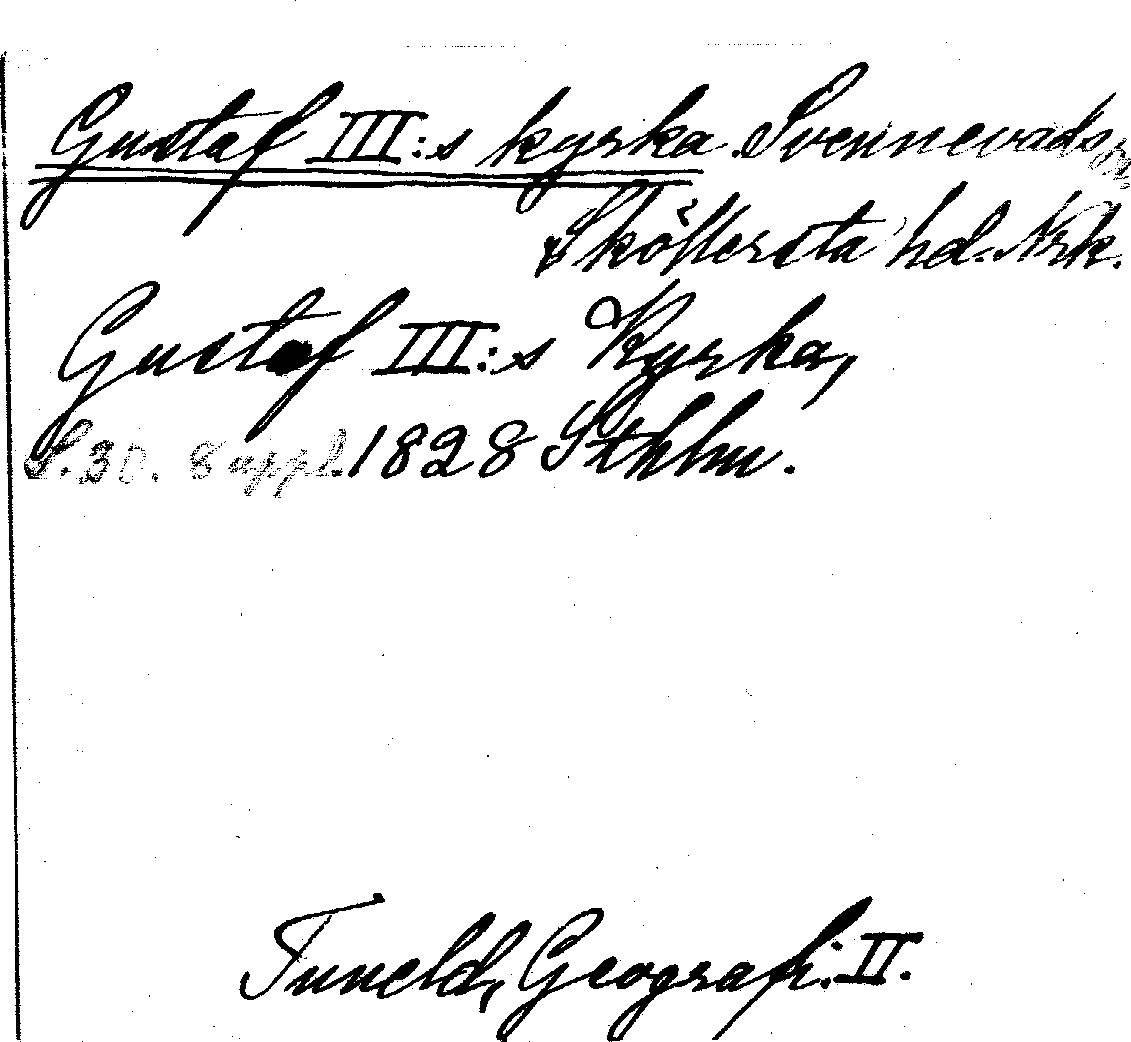 Gustaf III:s kyrka. Svennevads sn,
Sköllersta hd. Nrk.
Gustaf III:s Kyrka,
S. 30. Suppl. 1828 Sthlm.
Tuneld, Geografi. II.